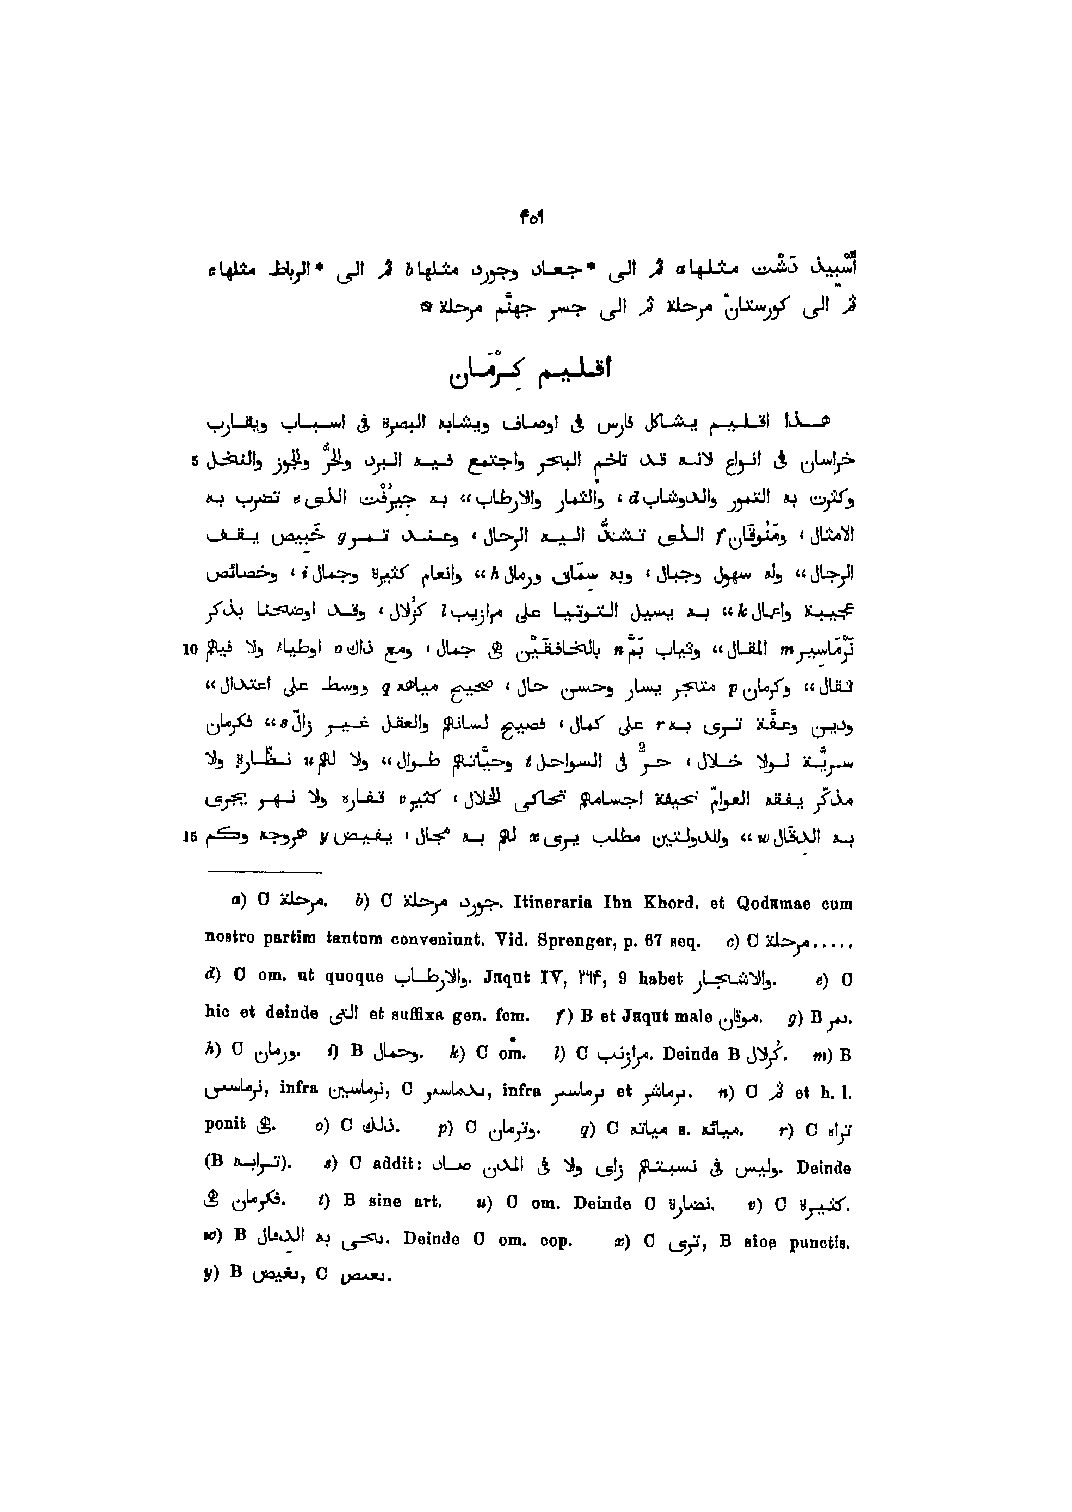 ۴٥۹
أسْبيذ دَشْت مثلها a ثم الى *جعاد وجورد مثلها b ثم الى *الرباط مثلها c
ثم الى كورستان مرحلة ثم الى جسر جهنّم مرحلة ۞
اقليم كِرْمَان
هذا اقليم يشاكل فارس فى اوصاف ويشابه البصرة فى اسباب ويقارب
خراسان فى انواع لانه قد تاخم البحر واجتمع فيه البرد والحرّ والجوز والنخل 5
وكثرت به التمور والدوشاب d ، والثمار والارطاب“ به جيرُفْت الذى e تضرب به
الامثال ، ومَنُوقان f الذى تشدّ اليه الرحال ، وعند تمر g خَبِيص يقف
الرجال“ وله سهول وجبال ، وبه سمّاق ورمال h“ وانعام كثيرة وجمال i ، وخصائص
عجيبة واعمال k“ به يسيل التوتيا على مرازيب l كرلال ، وقد اوضحنا بذكر
نَرْمَاسير m المقال“ وثياب بَمّ n بالخافقَيْن هى جمال ، ومع ذاك o اوطياء ولا فيهم 10
ثقال“ وكرمان p متجر يسار وحسن حال ، صحيح مياهه q ووسط على اعتدال“
ودين وعفّة ترى به r على كمال ، فصيح لسانهم والعقل غير زالّ s“ فكرمان
سريّة لولا خلال ، حرّ فى السواحل t وحيّاتهم طوال“ ولا لهم u نظّارة ولا
مذكّر يفقه العوامّ نحيفة اجسامهم تحاكى الخلال ، كثيرة v قفاره ولا نهر يجرى
به الدقال w“ وللدولتين مطلب يرى x لهم به مجال ، يفيض y فروجه وكم 15
a) C مرحلة. b) C جورد مرحلة. Itineraria Ibn Khord. et Qodamae cum
nostro partim tantum conveniunt. Vid. Sprenger, p. 67 seq. c) C مرحلة.....
d) C om. ut quoque والارطاب. Jaqut IV, ۲۹۴, 9 habet والاشجار. e) C
hic et deinde التى et suffixa gen. fem. f) B et Jaqut male موقان. g) B نمر.
h) C ورمان. i) B وحمال. k) C om. l) C مرازنب. Deinde B كُرلال. m) B
نرماسى, infra نرماسين, C , infra برماسير et برماشر. n) C ثم et h. l.
ponit هى. o) C ذلك. p) C وترمان. q) C مياته s. مياته. r) C تراه
(B ترابه). s) C addit: وليس فى نسبتهم زاى ولا فى المدن صاد. Deinde
فكرمان هى. t) B sine art. u) C om. Deinde C نضارة. v) C كثيرة.
w) B به الدمال. Deinde C om. cop. x) C ترى, B sine punctis.
y) B نغيض, C .